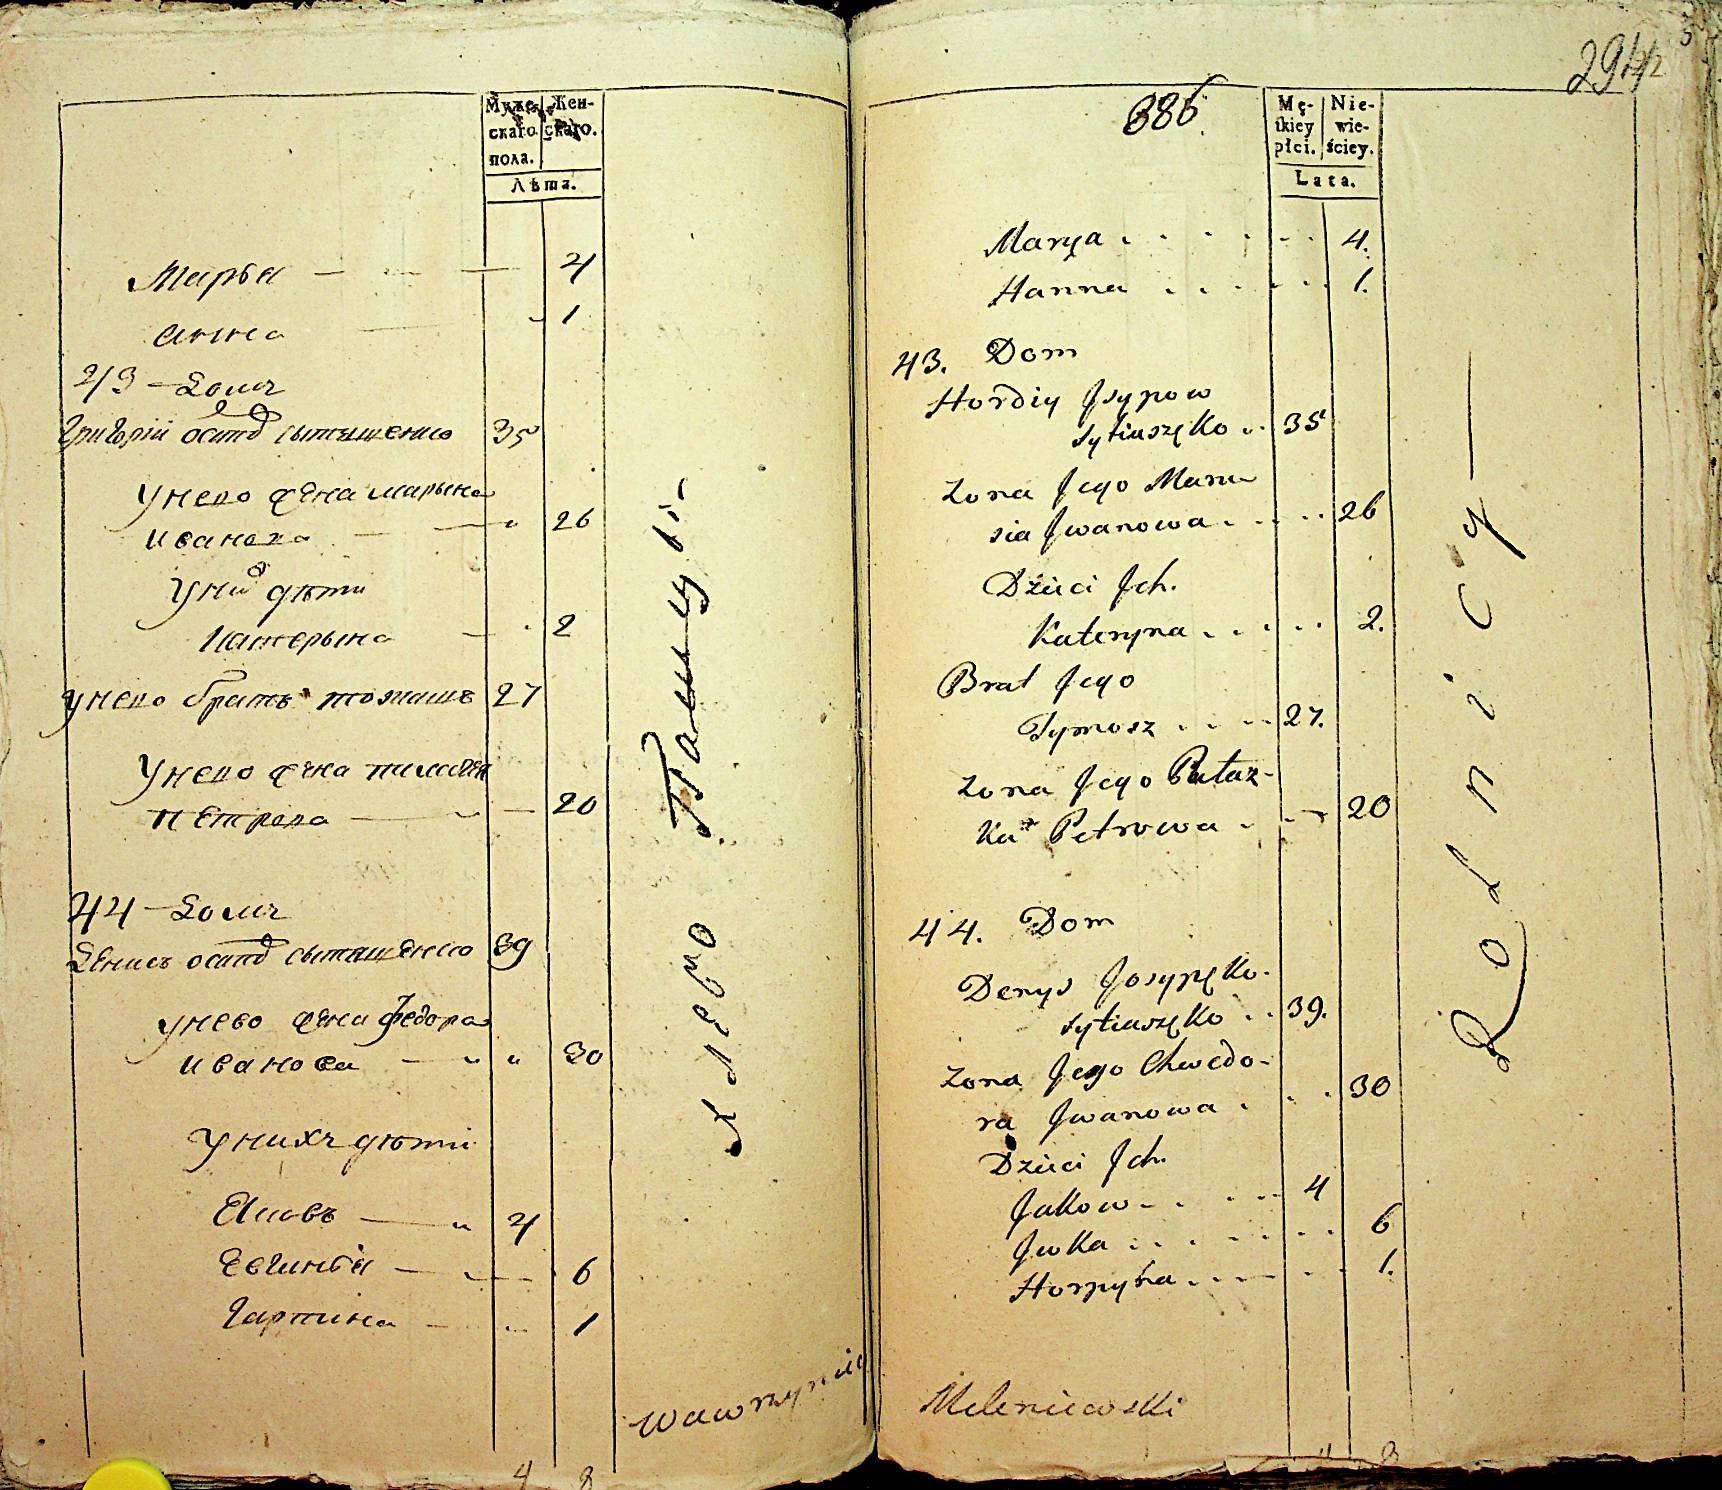 Муже-
скаго
пола.
Жен-
скаго.
Лѣта.
Марья 4
Анна 1
43 Домъ
Григорій Осипо Сытышенко 35
У него жена Марына
Иванова 26
У них дѣти
Катерына 2
У него братъ Томашъ 27
У него жена
Петрова 20
44 Домъ
Денисъ Осипо Сытышенко 39
У него жена Федора
Иванова 30
У нихъ дѣти
Яковъ 4
Евгинья 6
Гарпина 1
Wawrzyniec
386
294
Mę-
skiey
płci.
Nie-
wie-
ściey.
Lata.
Marya 4.
Hanna 1.
43. Dom
Hordiy Jsypow
Sytiuszęko 35
Zona Jego Maru-
sia Jwanowa 26
Dzieci Jch.
Kateryna 2.
Brat Jego
Tymosz 27.
Zona Jego Pałaz-
ka Petrowa 20
44. Dom
Denys Josypęko-
Sytiuszęko 39.
Zona Jego Chwedo-
ra Jwanowa 30
Dzieci Jch.
Jakow 4
Jwka 6
Horpyna 1.
Rolnicy
Meleniewski
4 8